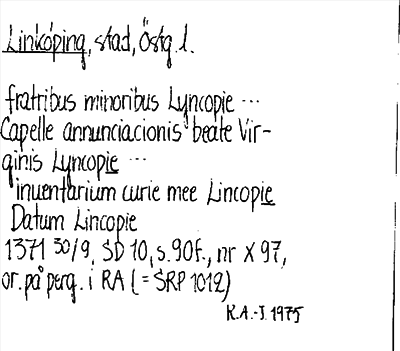 Linköping, stad, Östg. l.
fratribus minoribus Lyncopie ...
Capelle annunciacionis beate Vir-
ginis Lyncopie ...
inuentarium curie mee Lincopie
Datum Lincopie
1371 30/9, SD 10, s. 90f., nr X 97,
or. på perg. i RA (= SRP 1012)
K.A.-J. 1975